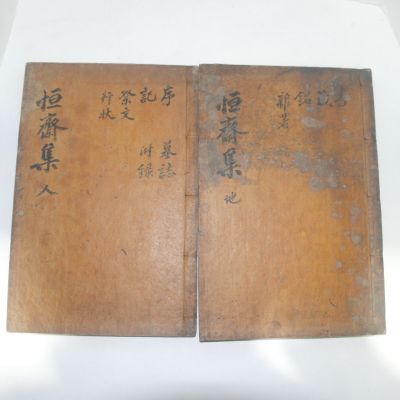 恒齋集 地
銘
雜著
恒齋集 人
序 墓誌
記 附錄
祭文
行狀